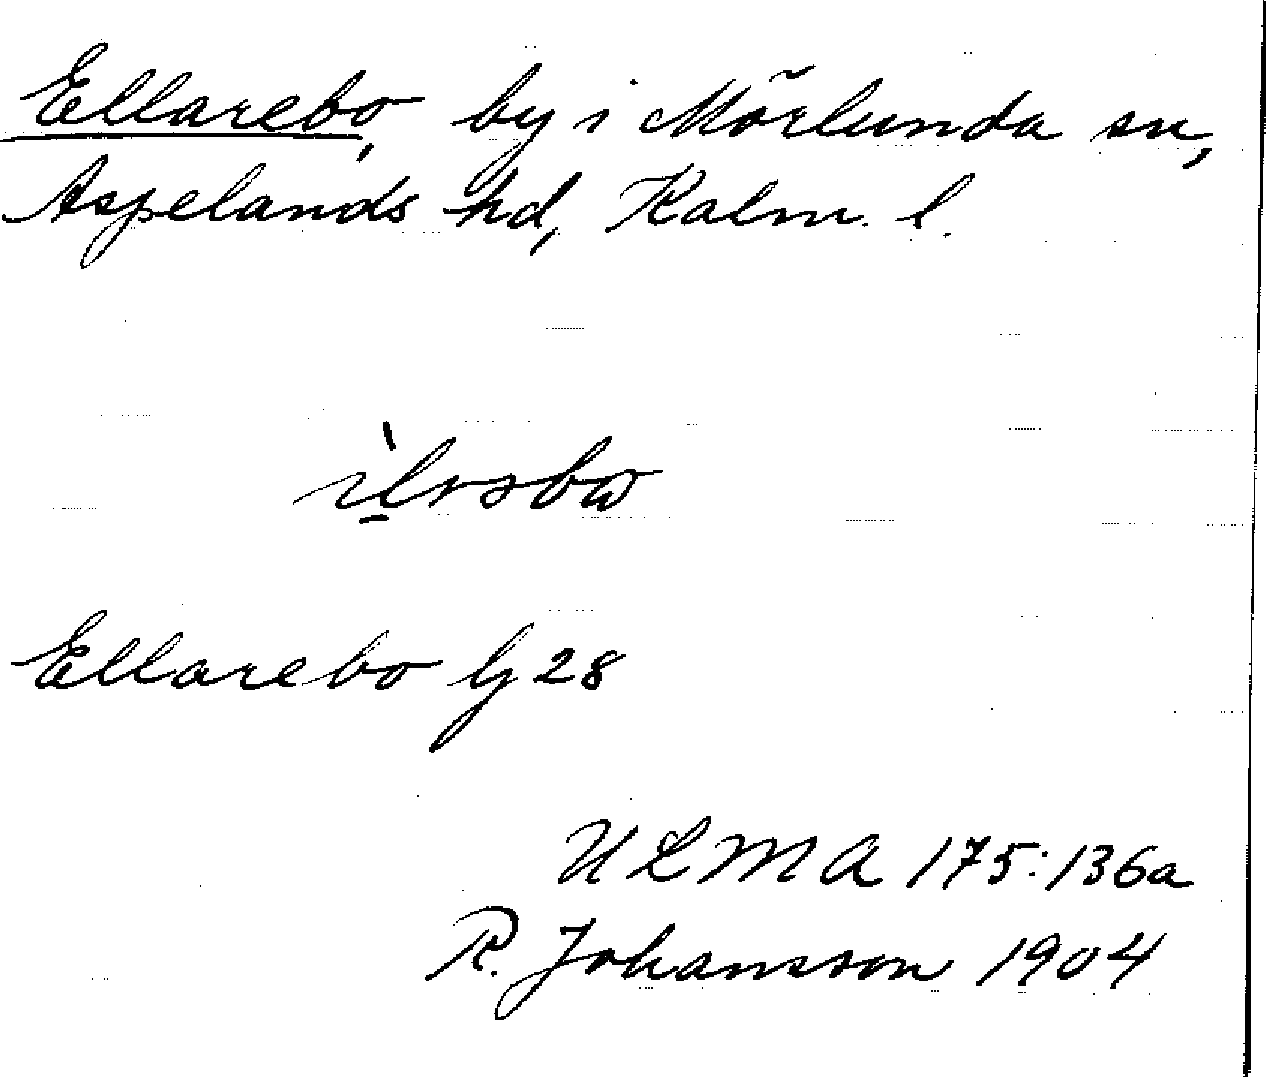 Ellarebo, by i Mörlunda sn,
Aspelands hd, Kalm. l.
Ellarebo lj 28
ULMA 175:136a
R. Johansson 1904